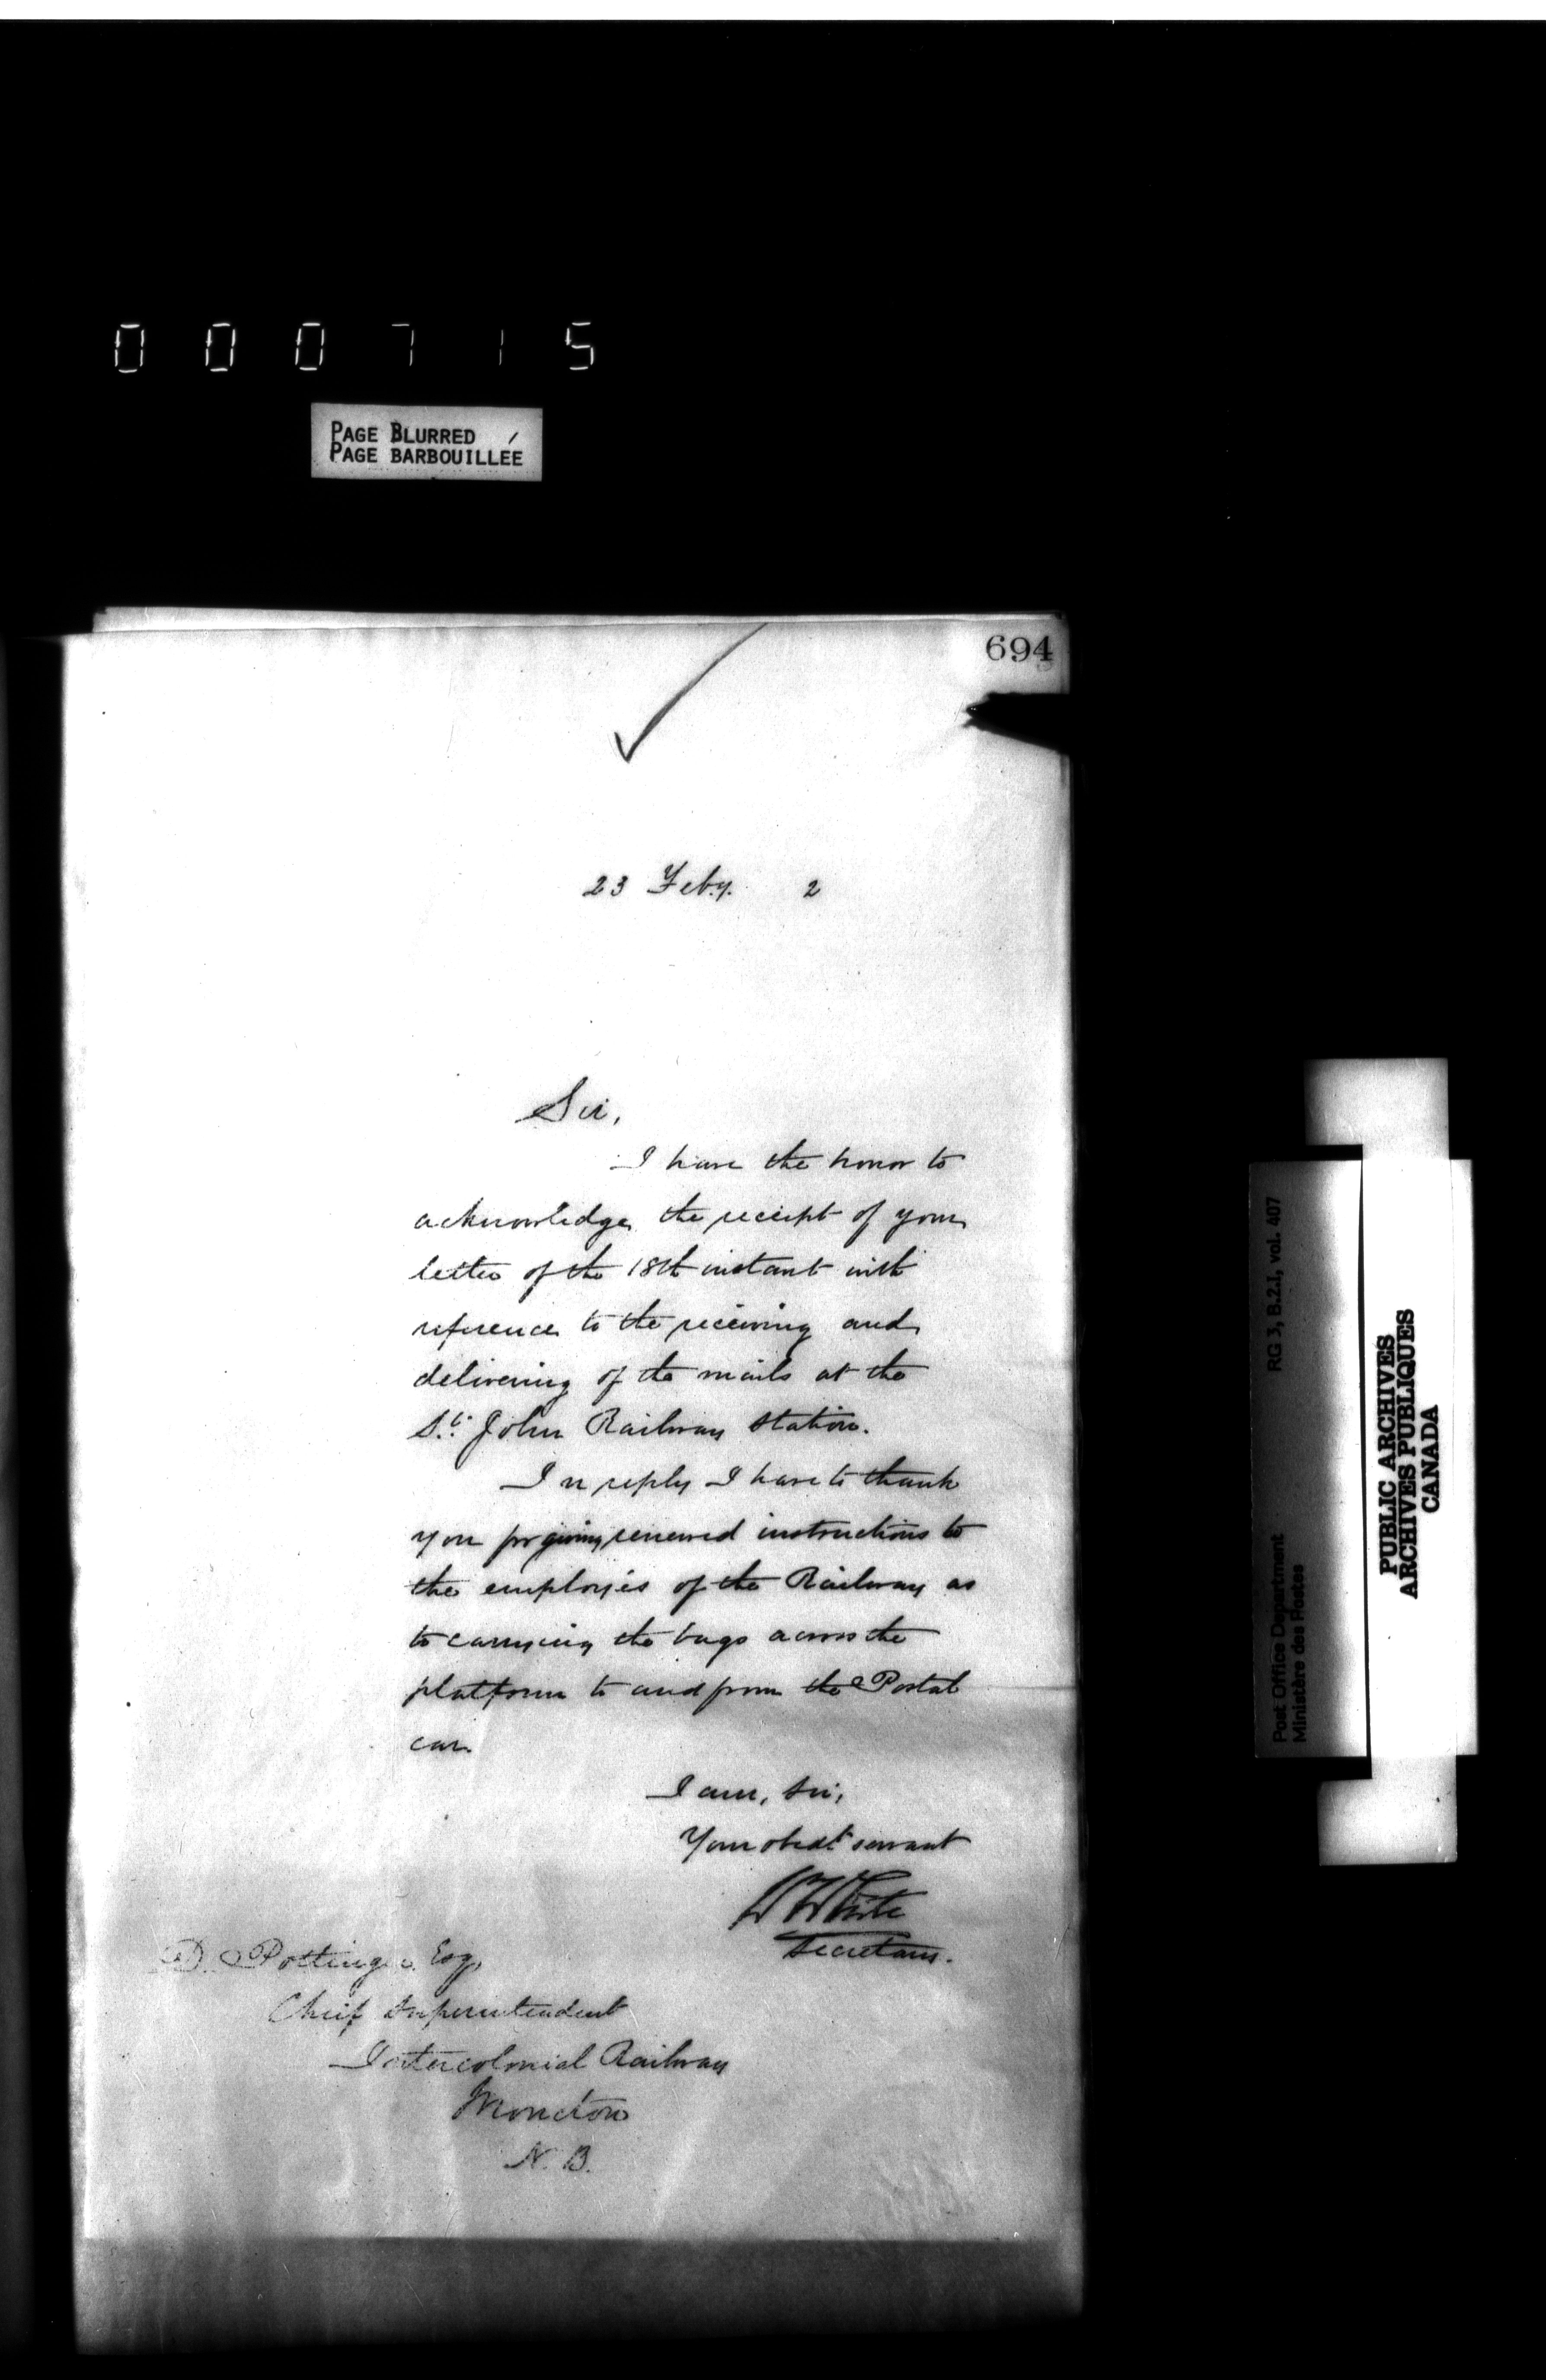 000715
PAGE BLURRED
PAGE BARBOUILLÉE
694
23 Feby. 2
Sir,
I have the honor to
acknowledge the receipt of your
letter of the 18th instant with
reference to the receiving and
delivering of the mails at the
St. John Railway Station.
In reply I have to thank
you for giving renewed instructions to
the employés of the Railway as
to carrying the bags across the
platform to and from the Postal
car.
I am, Sir,
Your obedt servant
W White
Secretary.
D. Pottinger Esq
Chief Superintendent
Intercolonial Railway
Moncton
N. B.
Post Office Department RG 3, B.2.I, vol. 407
Ministère des Postes
PUBLIC ARCHIVES
ARCHIVES PUBLIQUES
CANADA